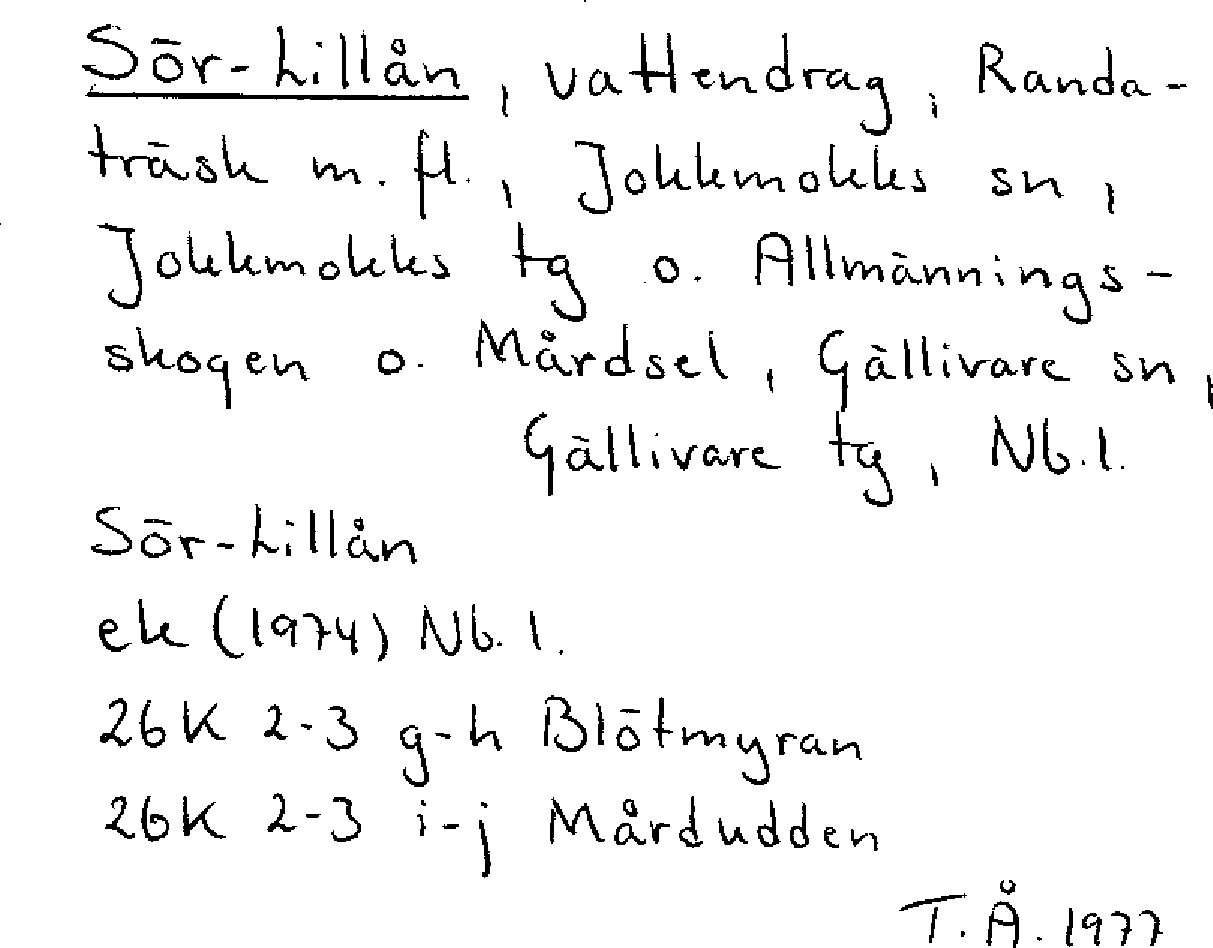 Sör-Lillån, vattendrag, Randa-
träsk m. fl., Jokkmokks sn,
Jokkmokks tg o. Allmännings-
skogen o. Mårdsel, Gällivare sn,
Gällivare tg, Nb.l.
Sör-Lillån
ek (1974) Nb. l.
26K 2-3 g-h Blötmyran
26K 2-3 i-j Mårdudden
T.Å. 1977